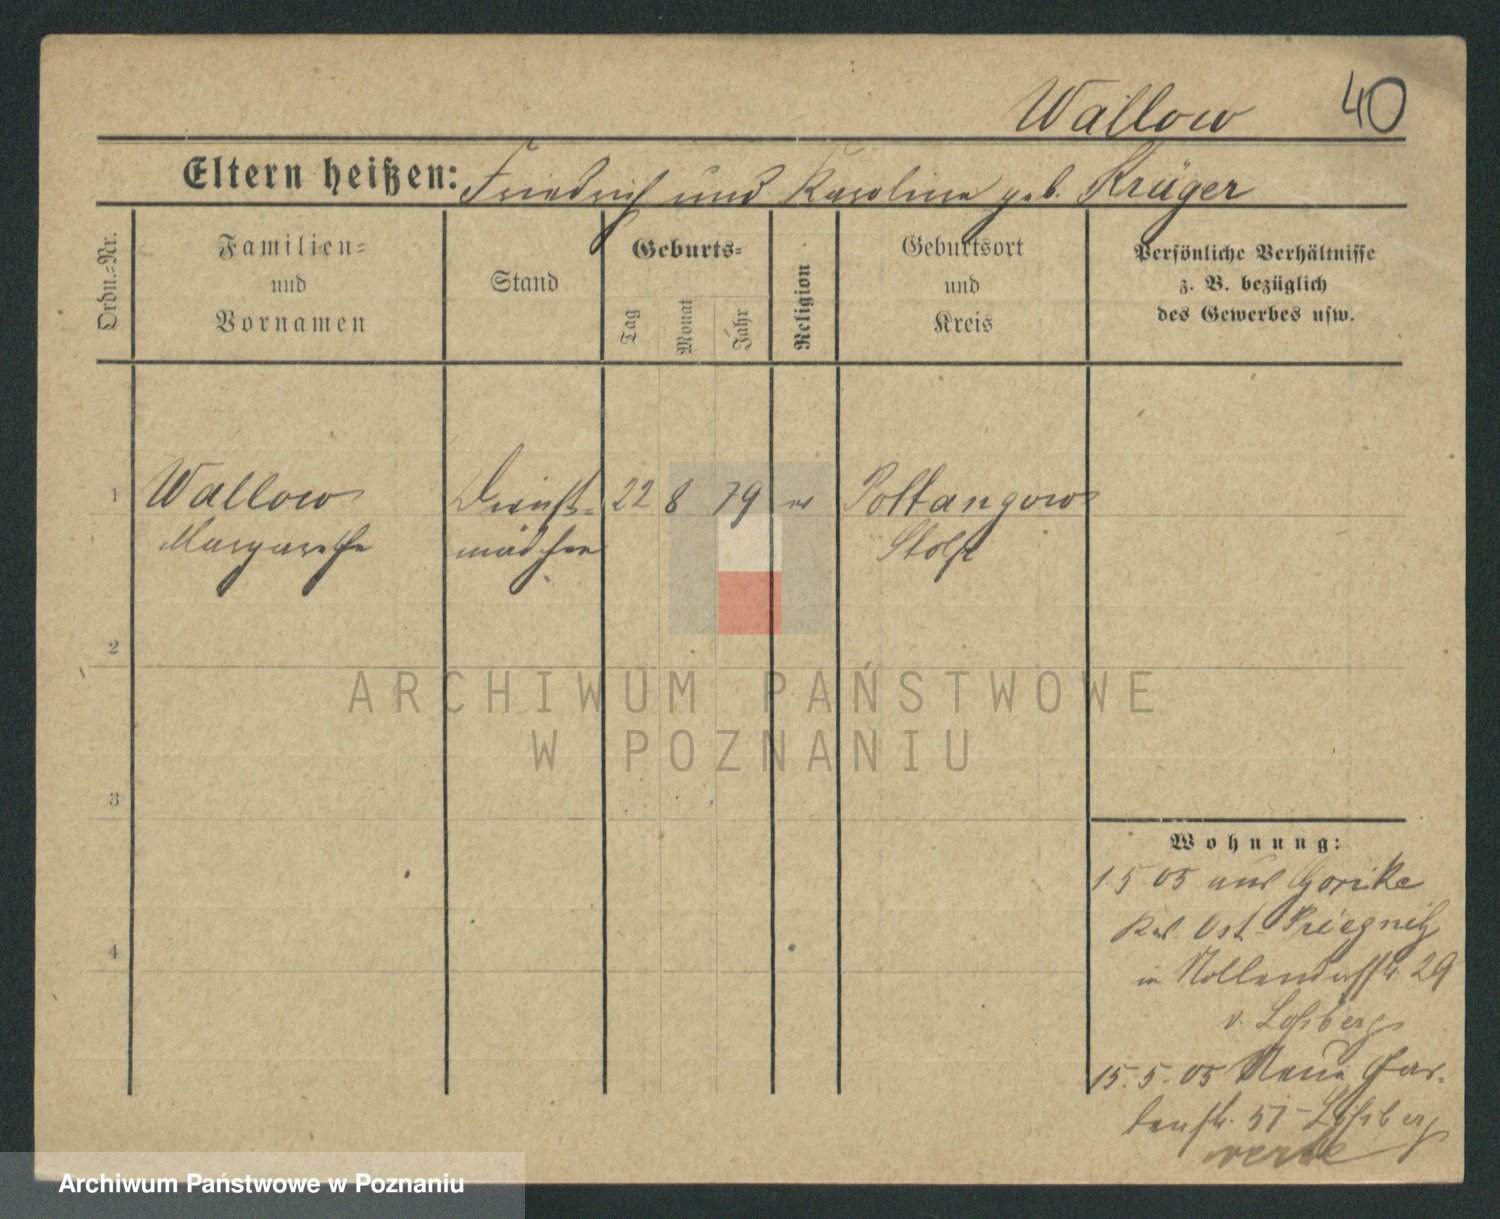 Wallow 40
Eltern heißen: Friedrich und Karoline geb. Krüger
Ordn.=Nr.
Familien=
und
Vornamen
Stand
Geburts=
Tag
Monat
Jahr
Religion
Geburtsort
und
Kreis
Persönliche Verhältnisse
z. B. bezüglich
des Gewerbes usw.
1 Wallow Dienst= 22 8 79 ev Pottangow
Margarethe mädchen Stolp
2
3
4
Wohnung:
1.5 05 aus Gorike
Ost Priegnitz
in Nollendorfstr. 29
v. Loßberg
15.5.05 Neue Gar-
tenstr. 57 Loßberg
ARCHIWUM PAŃSTWOWE
W POZNANIU
Archiwum Państwowe w Poznaniu